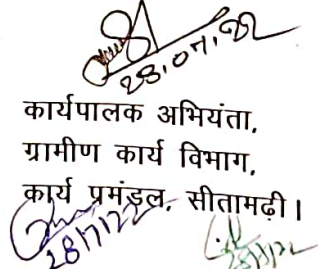 28.07.22
कार्यपालक अभियंता,
ग्रामीण कार्य विभाग,
कार्य प्रमंडल, सीतामढ़ी।
28/7/22